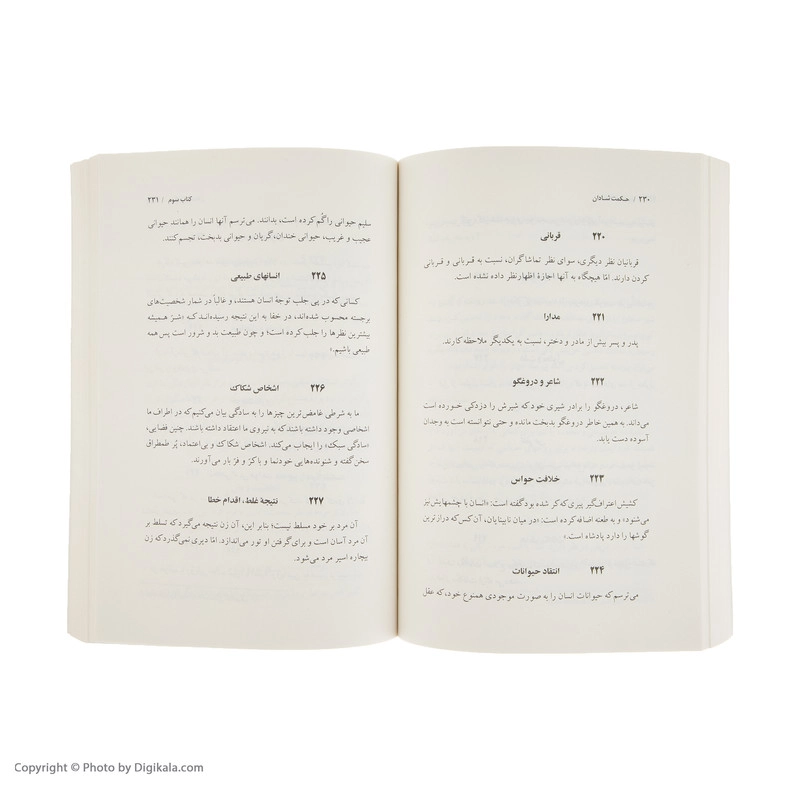 ۲۳۰ / حکمت شادان
۲۲۰ قربانی
قربانیان نظر دیگری، سوای نظر تماشاگران، نسبت به قربانی و قربانی
کردن دارند. امّا هیچگاه به آنها اجازهٔ اظهارنظر داده نشده است.
۲۲۱ مدارا
پدر و پسر بیش از مادر و دختر، نسبت به یکدیگر ملاحظه‌کارند.
۲۲۲ شاعر و دروغگو
شاعر، دروغگو را برادر شیری خود که شیرش را دزدکی خورده است
می‌داند. به همین خاطر دروغگو بدبخت مانده و حتی نتوانسته است به وجدان
آسوده دست یابد.
۲۲۳ خلافت حواس
کشیش اعتراف‌گیر پیری که کر شده بود گفته است: «انسان با چشمهایش نیز
می‌شنود» و به طعنه اضافه کرده است: «در میان نابینایان، آن‌کس که درازترین
گوشها را دارد پادشاه است.»
۲۲۴ انتقاد حیوانات
می‌ترسم که حیوانات انسان را به صورت موجودی همنوع خود، که عقل
کتاب سوم / ۲۳۱
سلیم حیوانی را گُم کرده است، بدانند. می‌ترسم آنها انسان را همانند حیوانی
عجیب و غریب، حیوانی خندان، گریان و حیوانی بدبخت، تجسم کنند.
۲۲۵ انسانهای طبیعی
کسانی که در پی جلب توجهٔ انسان هستند، و غالباً در شمار شخصیت‌های
برجسته محسوب شده‌اند، در خفا به این نتیجه رسیده‌اند که «شرّ همیشه
بیشترین نظرها را جلب کرده است؛ و چون طبیعت بد و شرور است پس همه
طبیعی باشیم.»
۲۲۶ اشخاص شکاک
ما به شرطی غامض‌ترین چیزها را به سادگی بیان می‌کنیم که در اطراف ما
اشخاصی وجود داشته باشند که به نیروی ما اعتقاد داشته باشند. چنین فضایی،
«سادگی سبک» را ایجاب می‌کند. اشخاص شکاک و بی‌اعتماد، پُر طمطراق
سخن گفته و شنونده‌هایی خودنما و باکرّ و فرّ بار می‌آورند.
۲۲۷ نتیجهٔ غلط، اقدام خطا
آن مرد بر خود مسلط نیست؛ بنابر این، آن زن نتیجه می‌گیرد که تسلط بر
آن مرد آسان است و برای گرفتن او تور می‌اندازد. امّا دیری نمی‌گذرد که زن
بیچاره اسیر مرد می‌شود.
Copyright © Photo by Digikala.com